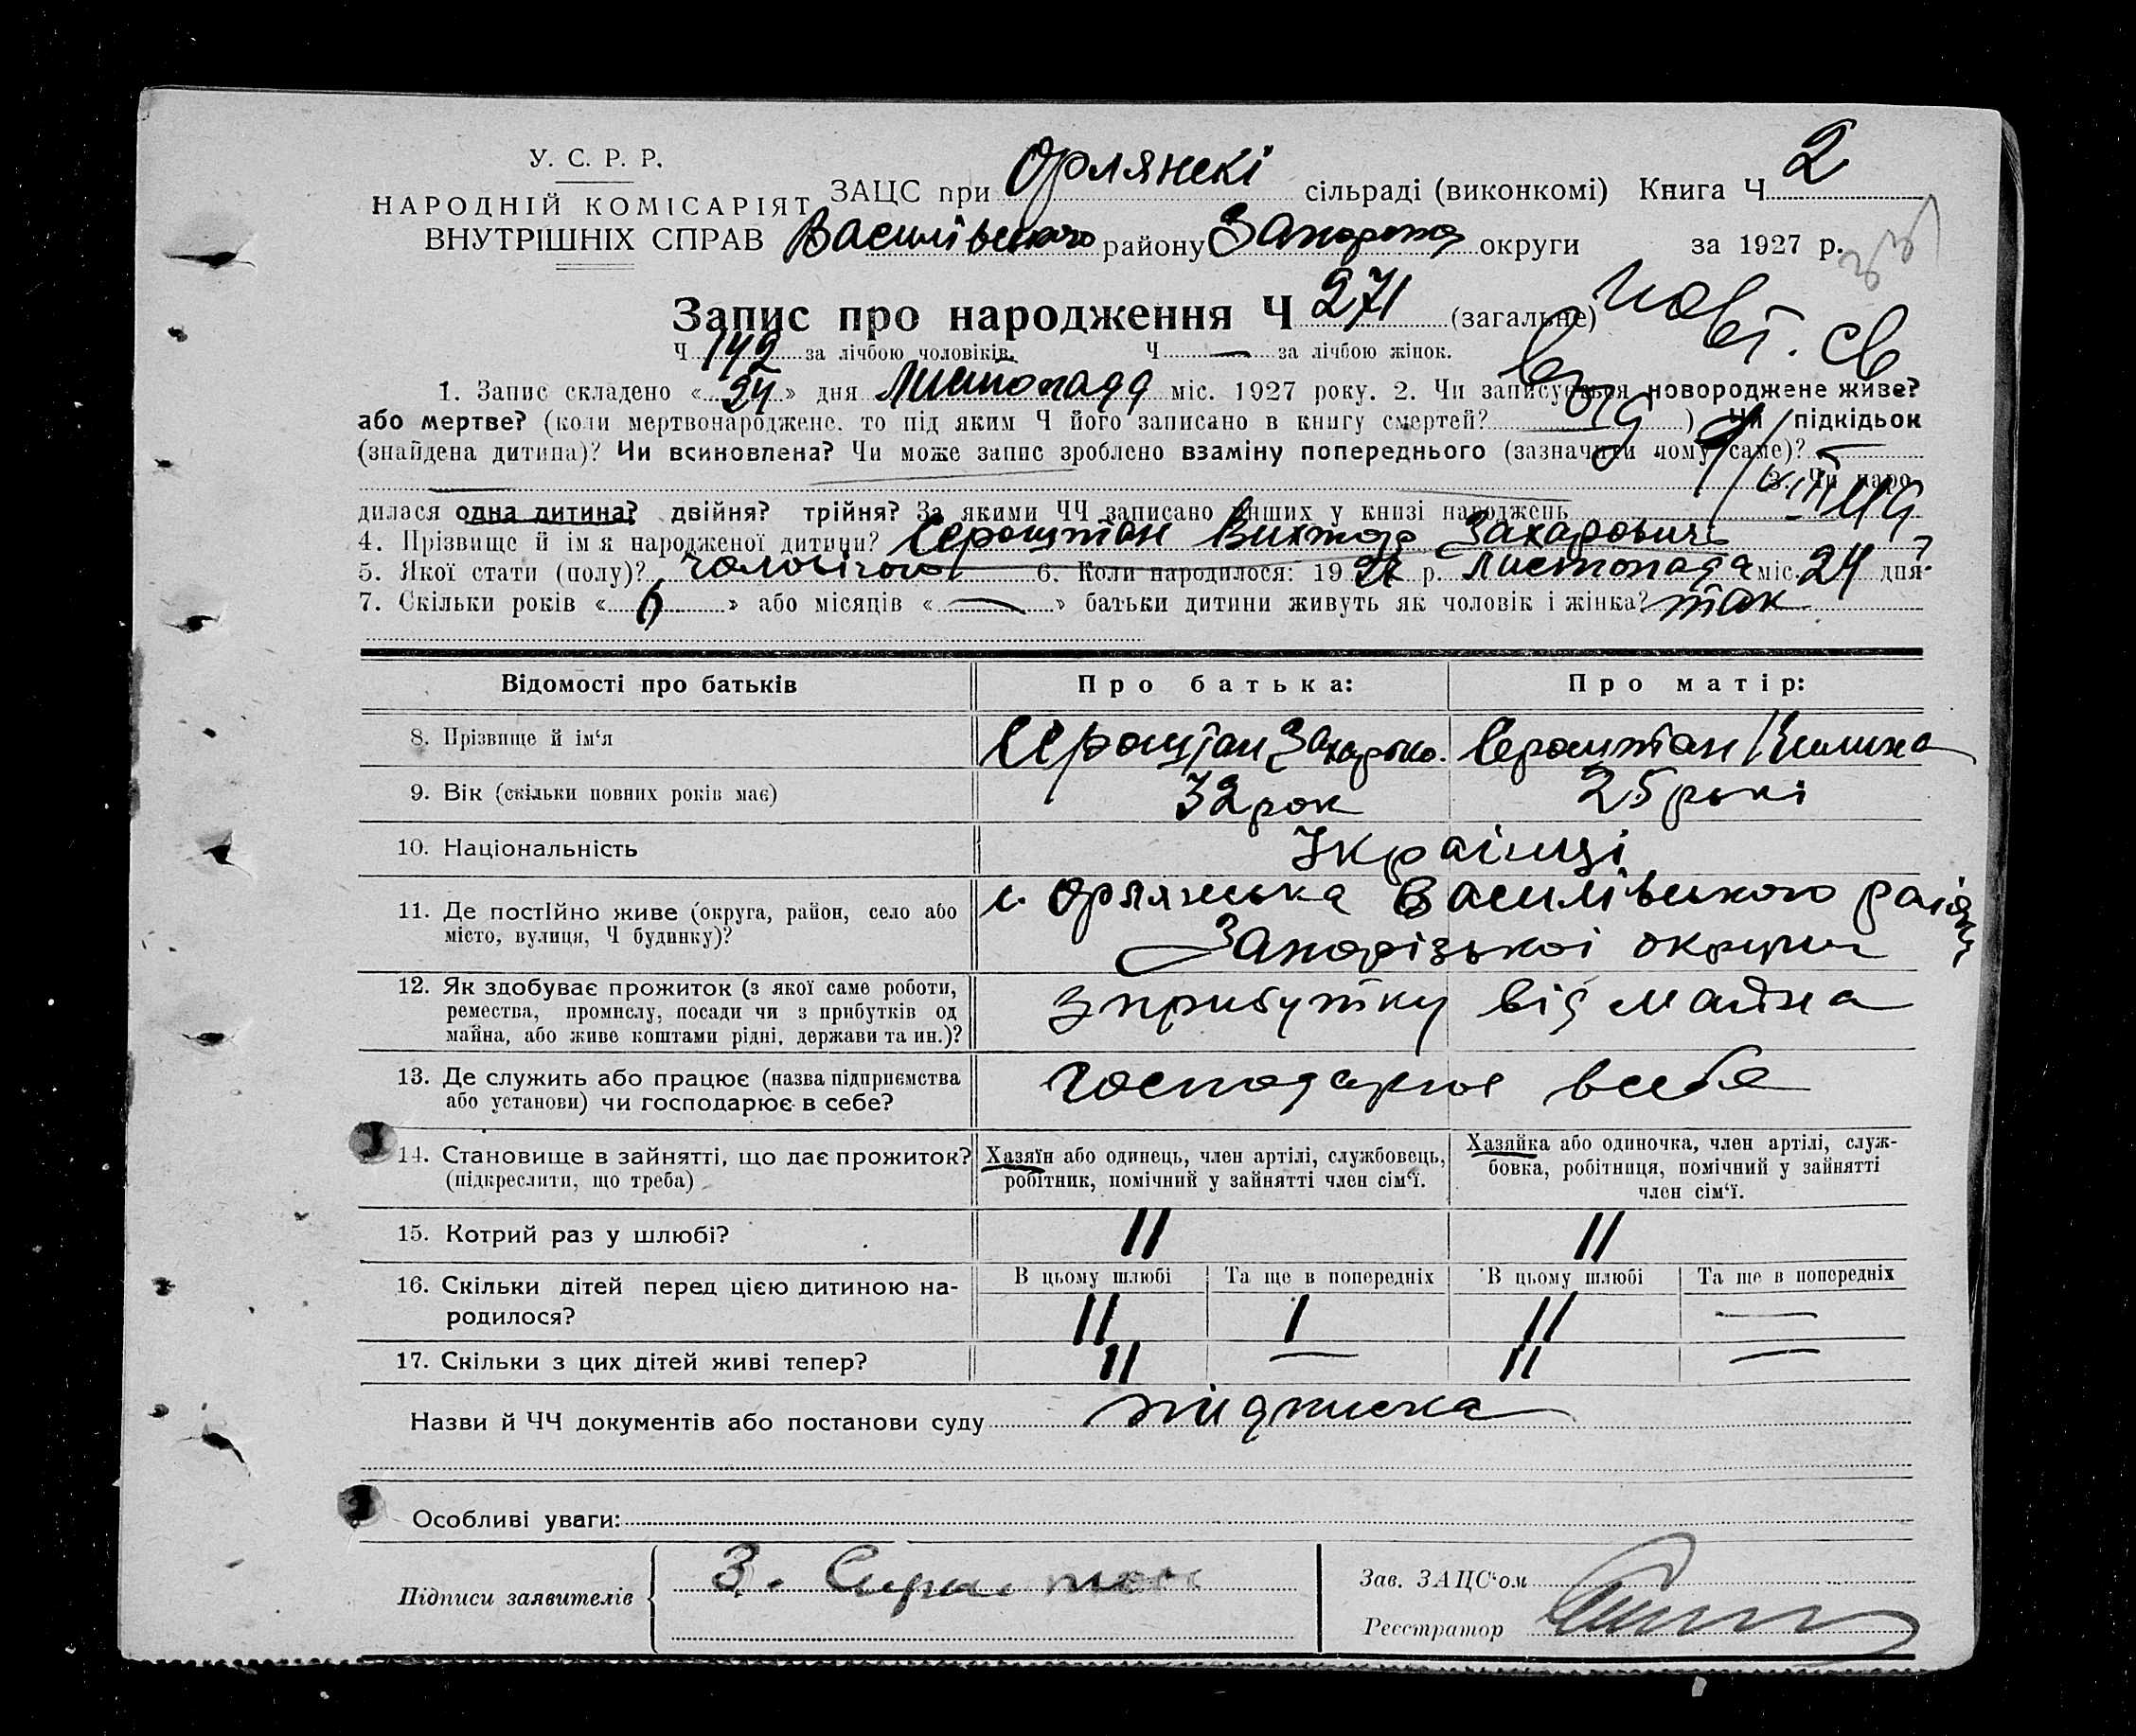 У. С. Р. Р.
НАРОДНІЙ КОМІСАРІЯТ
ВНУТРІШНІХ СПРАВ
ЗАЦС при Орлянскі сільраді (виконкомі) Книга Ч 2
Василівського району Запорож округи за 1927 р.
Запис про народження Ч 271 (загальне)
Ч 142 за лічбою чоловіків. Ч — за лічбою жінок.
Повт. св
1. Запис складено «24» дня Листопада міс. 1927 року. 2. Чи записується новороджене живе?
або мертве? (коли мертвонароджене, то під яким Ч його записано в книгу смертей? ) Чи підкідьок
(знайдена дитина)? Чи всиновлена? Чи може запис зроблено взаміну попереднього (зазначити чому саме)? —
— 3. Чи наро-
дилася одна дитина? двійня? трійня? За якими ЧЧ записано інших у книзі народжень
4. Прізвище й ім я народженої дитини? Сероштан Виктор Захарович ?
5. Якої стати (полу)? чоловічої 6. Коли народилося: 1927 р. Листопада міс. 24 дня
7. Скільки років «6» або місяців «—» батьки дитини живуть як чоловік і жінка? так
Відомості про батьків Про батька: Про матір:
8. Прізвище й ім‘я Сероштан Сероштан
9. Вік (скільки повних років має) 32 рок 25 рокі
10. Національність Українці
11. Де постІйно живе (округа, район, село або
місто, вулиця, Ч будинку)?
с. Орлянська Василівського району
Запорізької округи
12. Як здобуває прожиток (з якої саме роботи,
ремества, промислу, посади чи з прибутків од
майна, або живе коштами рідні, держави та ин.)?
з прибутку від майна
13. Де служить або працює (назва підприємства
або установи) чи господарює в себе?
господарює в себе
14. Становище в зайнятті, що дає прожиток?
(підкреслити, що треба)
Хазяїн або одинець, член артілі, службовець,
робітник, помічний у зайнятті член сім‘ї.
Хазяйка або одиночка, член артілі, служ-
бовка, робітниця, помічний у зайнятті
член сім‘ї.
15. Котрий раз у шлюбі? II II
16. Скільки дітей перед цією дитиною на-
родилося?
В цьому шлюбі Та ще в попередніх В цьому шлюбі Та ще в попередніх
II I II —
17. Скільки з цих дітей живі тепер? II — II —
Назви й ЧЧ документів або постанови суду підписка
Особливі уваги:
Підписи заявителів З. Сероштан
Зав. ЗАЦС‘ом
Реєстратор